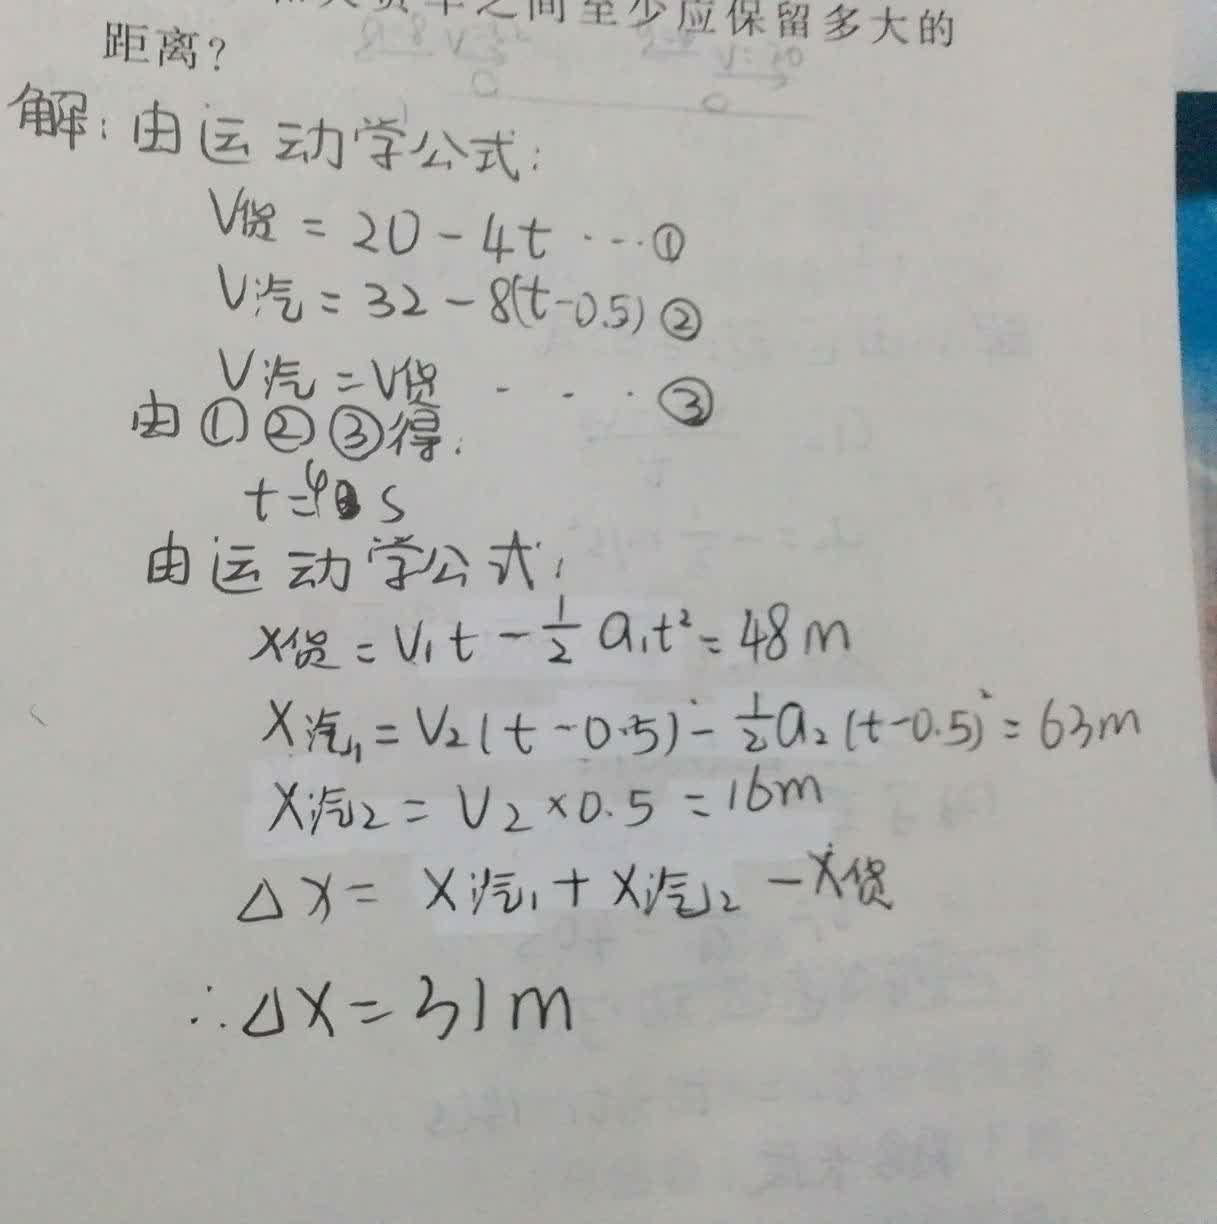 之间至少应保留多大的
距离？
解：由运动学公式：
V货 = 20 - 4t ··· ①
V汽 = 32 - 8(t-0.5) ②
V汽 = V货 - · · ③
由①②③得：
t=4 s
由运动学公式：
X货 = V₁t - 1/2 a₁t² = 48m
X汽₁ = V₂(t-0.5) - 1/2 a₂(t-0.5)² = 63m
X汽₂ = V₂×0.5 = 16m
△X = X汽₁ + X汽₂ - X货
∴△X = 31m